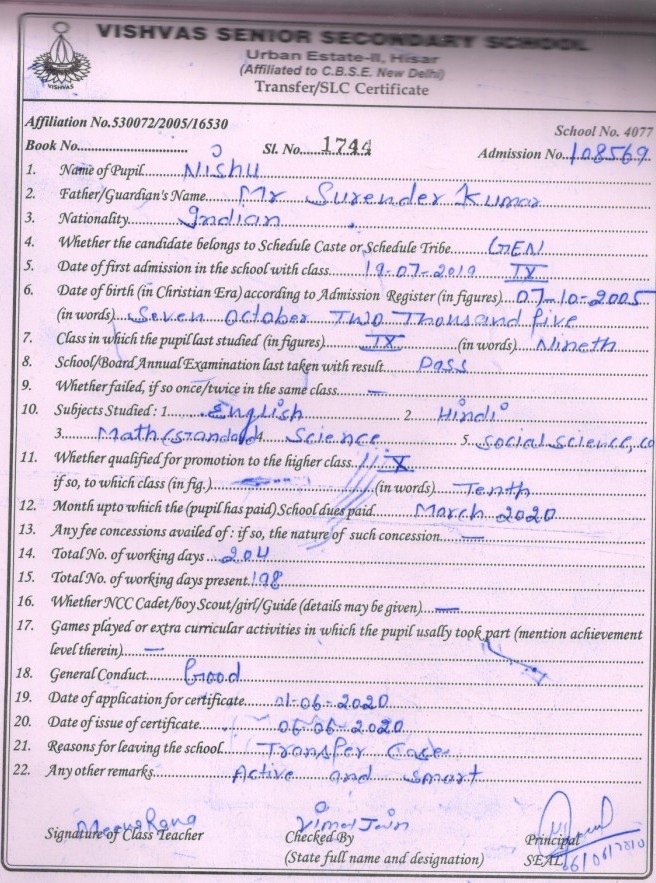 VISHVAS SENIOR SECONDARY SCHOOL
Urban Estate-II, Hisar
(Affiliated to C.B.S.E. New Delhi)
Transfer/SLC Certificate
VISHVAS
Affiliation No.530072/2005/16530
School No. 4077
Book No. Sl. No. 1744 Admission No. 108569
1. Name of Pupil Nishu
2. Father/Guardian's Name Mr Surender Kumar
3. Nationality Indian
4. Whether the candidate belongs to Schedule Caste or Schedule Tribe GEN
5. Date of first admission in the school with class 19-07-2019 IX
6. Date of birth (in Christian Era) according to Admission Register (in figures) 07-10-2005
(in words) Seven October Two Thousand five
7. Class in which the pupil last studied (in figures) IX (in words) Nineth
8. School/Board Annual Examination last taken with result Pass
9. Whether failed, if so once/twice in the same class —
10. Subjects Studied : 1 English 2. Hindi
3. Math (standard) 4. Science 5. Social Science, Co
11. Whether qualified for promotion to the higher class X
if so, to which class (in fig.) (in words) Tenth
12. Month upto which the (pupil has paid) School dues paid March 2020
13. Any fee concessions availed of : if so, the nature of such concession —
14. Total No. of working days 204
15. Total No. of working days present 198
16. Whether NCC Cadet/boy Scout/girl/Guide (details may be given) —
17. Games played or extra curricular activities in which the pupil usally took part (mention achievement
level therein) —
18. General Conduct Good
19. Date of application for certificate 01-06-2020
20. Date of issue of certificate 06-06-2020
21. Reasons for leaving the school Transfer Case
22. Any other remarks Active and Smart
Meena Rana Vimal Jain
Signature of Class Teacher Checked By Principal
(State full name and designation) SEAL